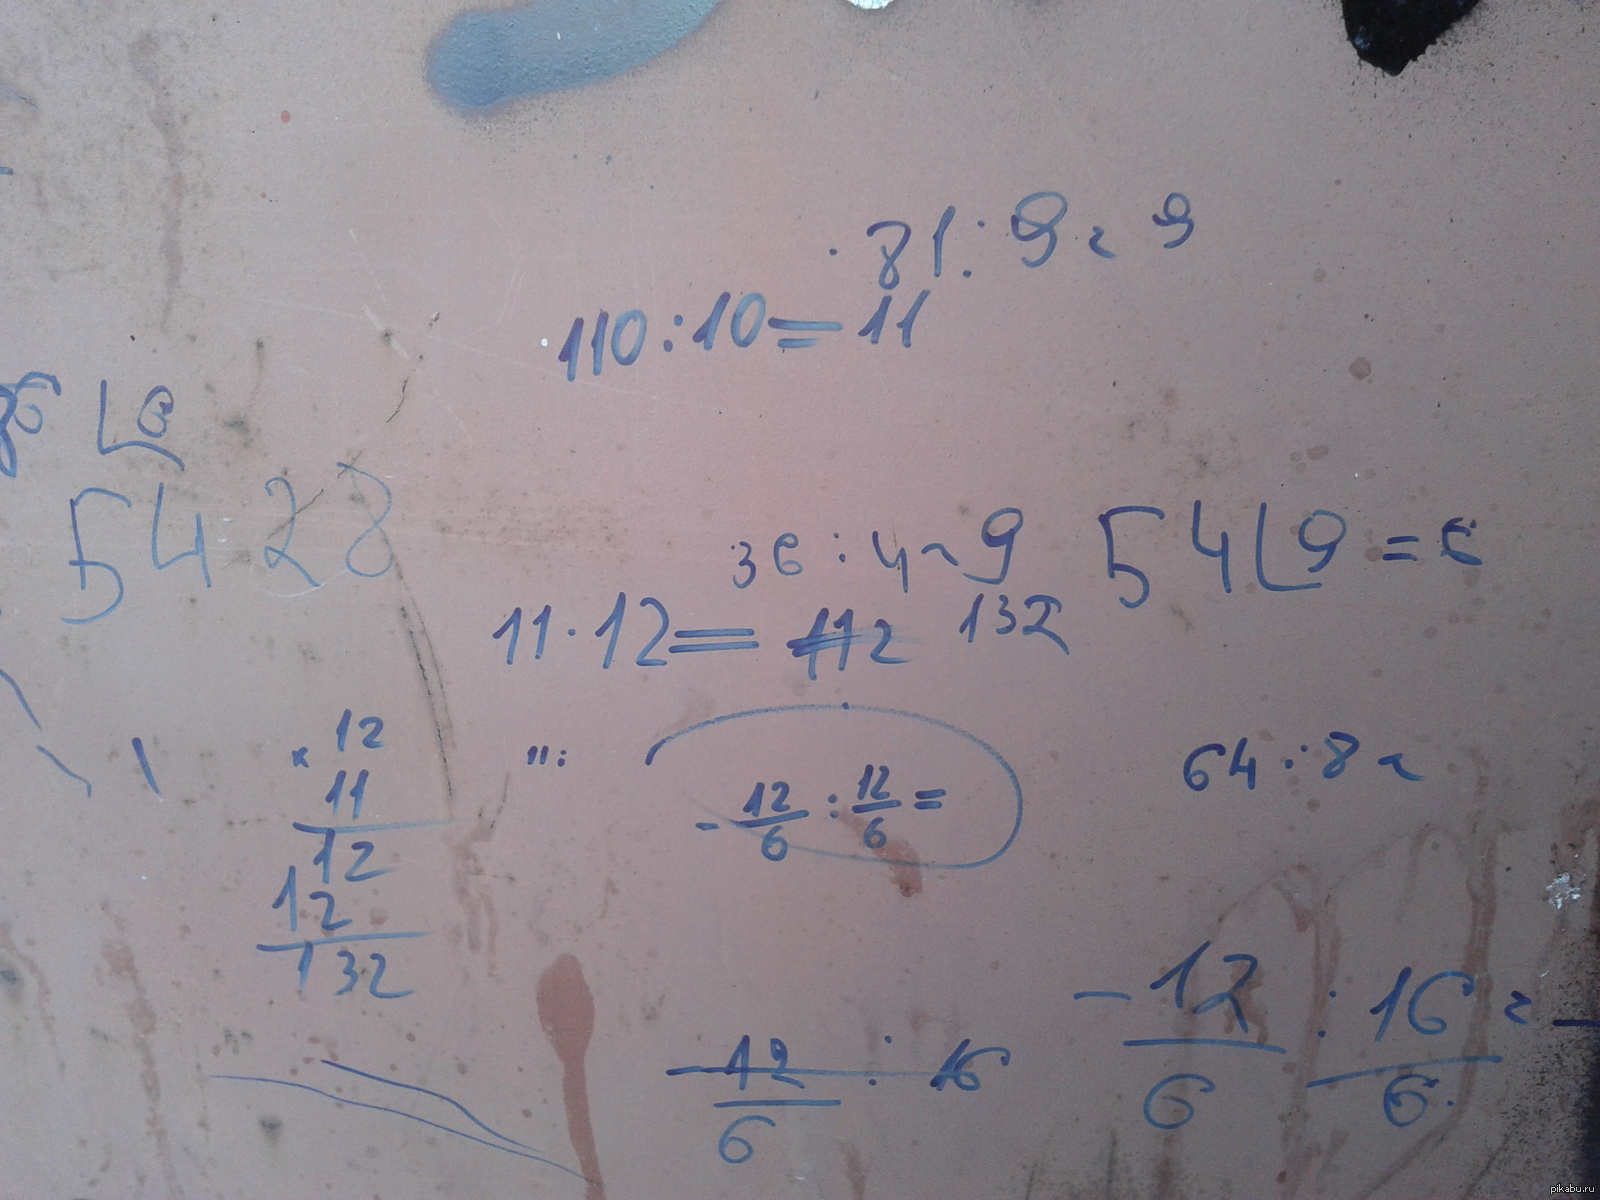 81 : 9 = 9
110 : 10 = 11
54 28
36 : 4 = 9
54 9 = 6
11 · 12 = 112 132
× 12
11
12
12
132
":
- 12/6 : 12/6 =
64 : 8 =
- 12/6 : 16/6 =
- 12/6 : 16
pikabu.ru